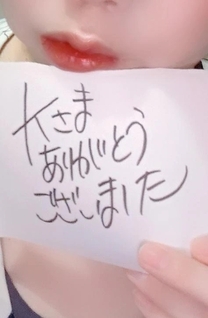 Kさま
ありがとう
ございました